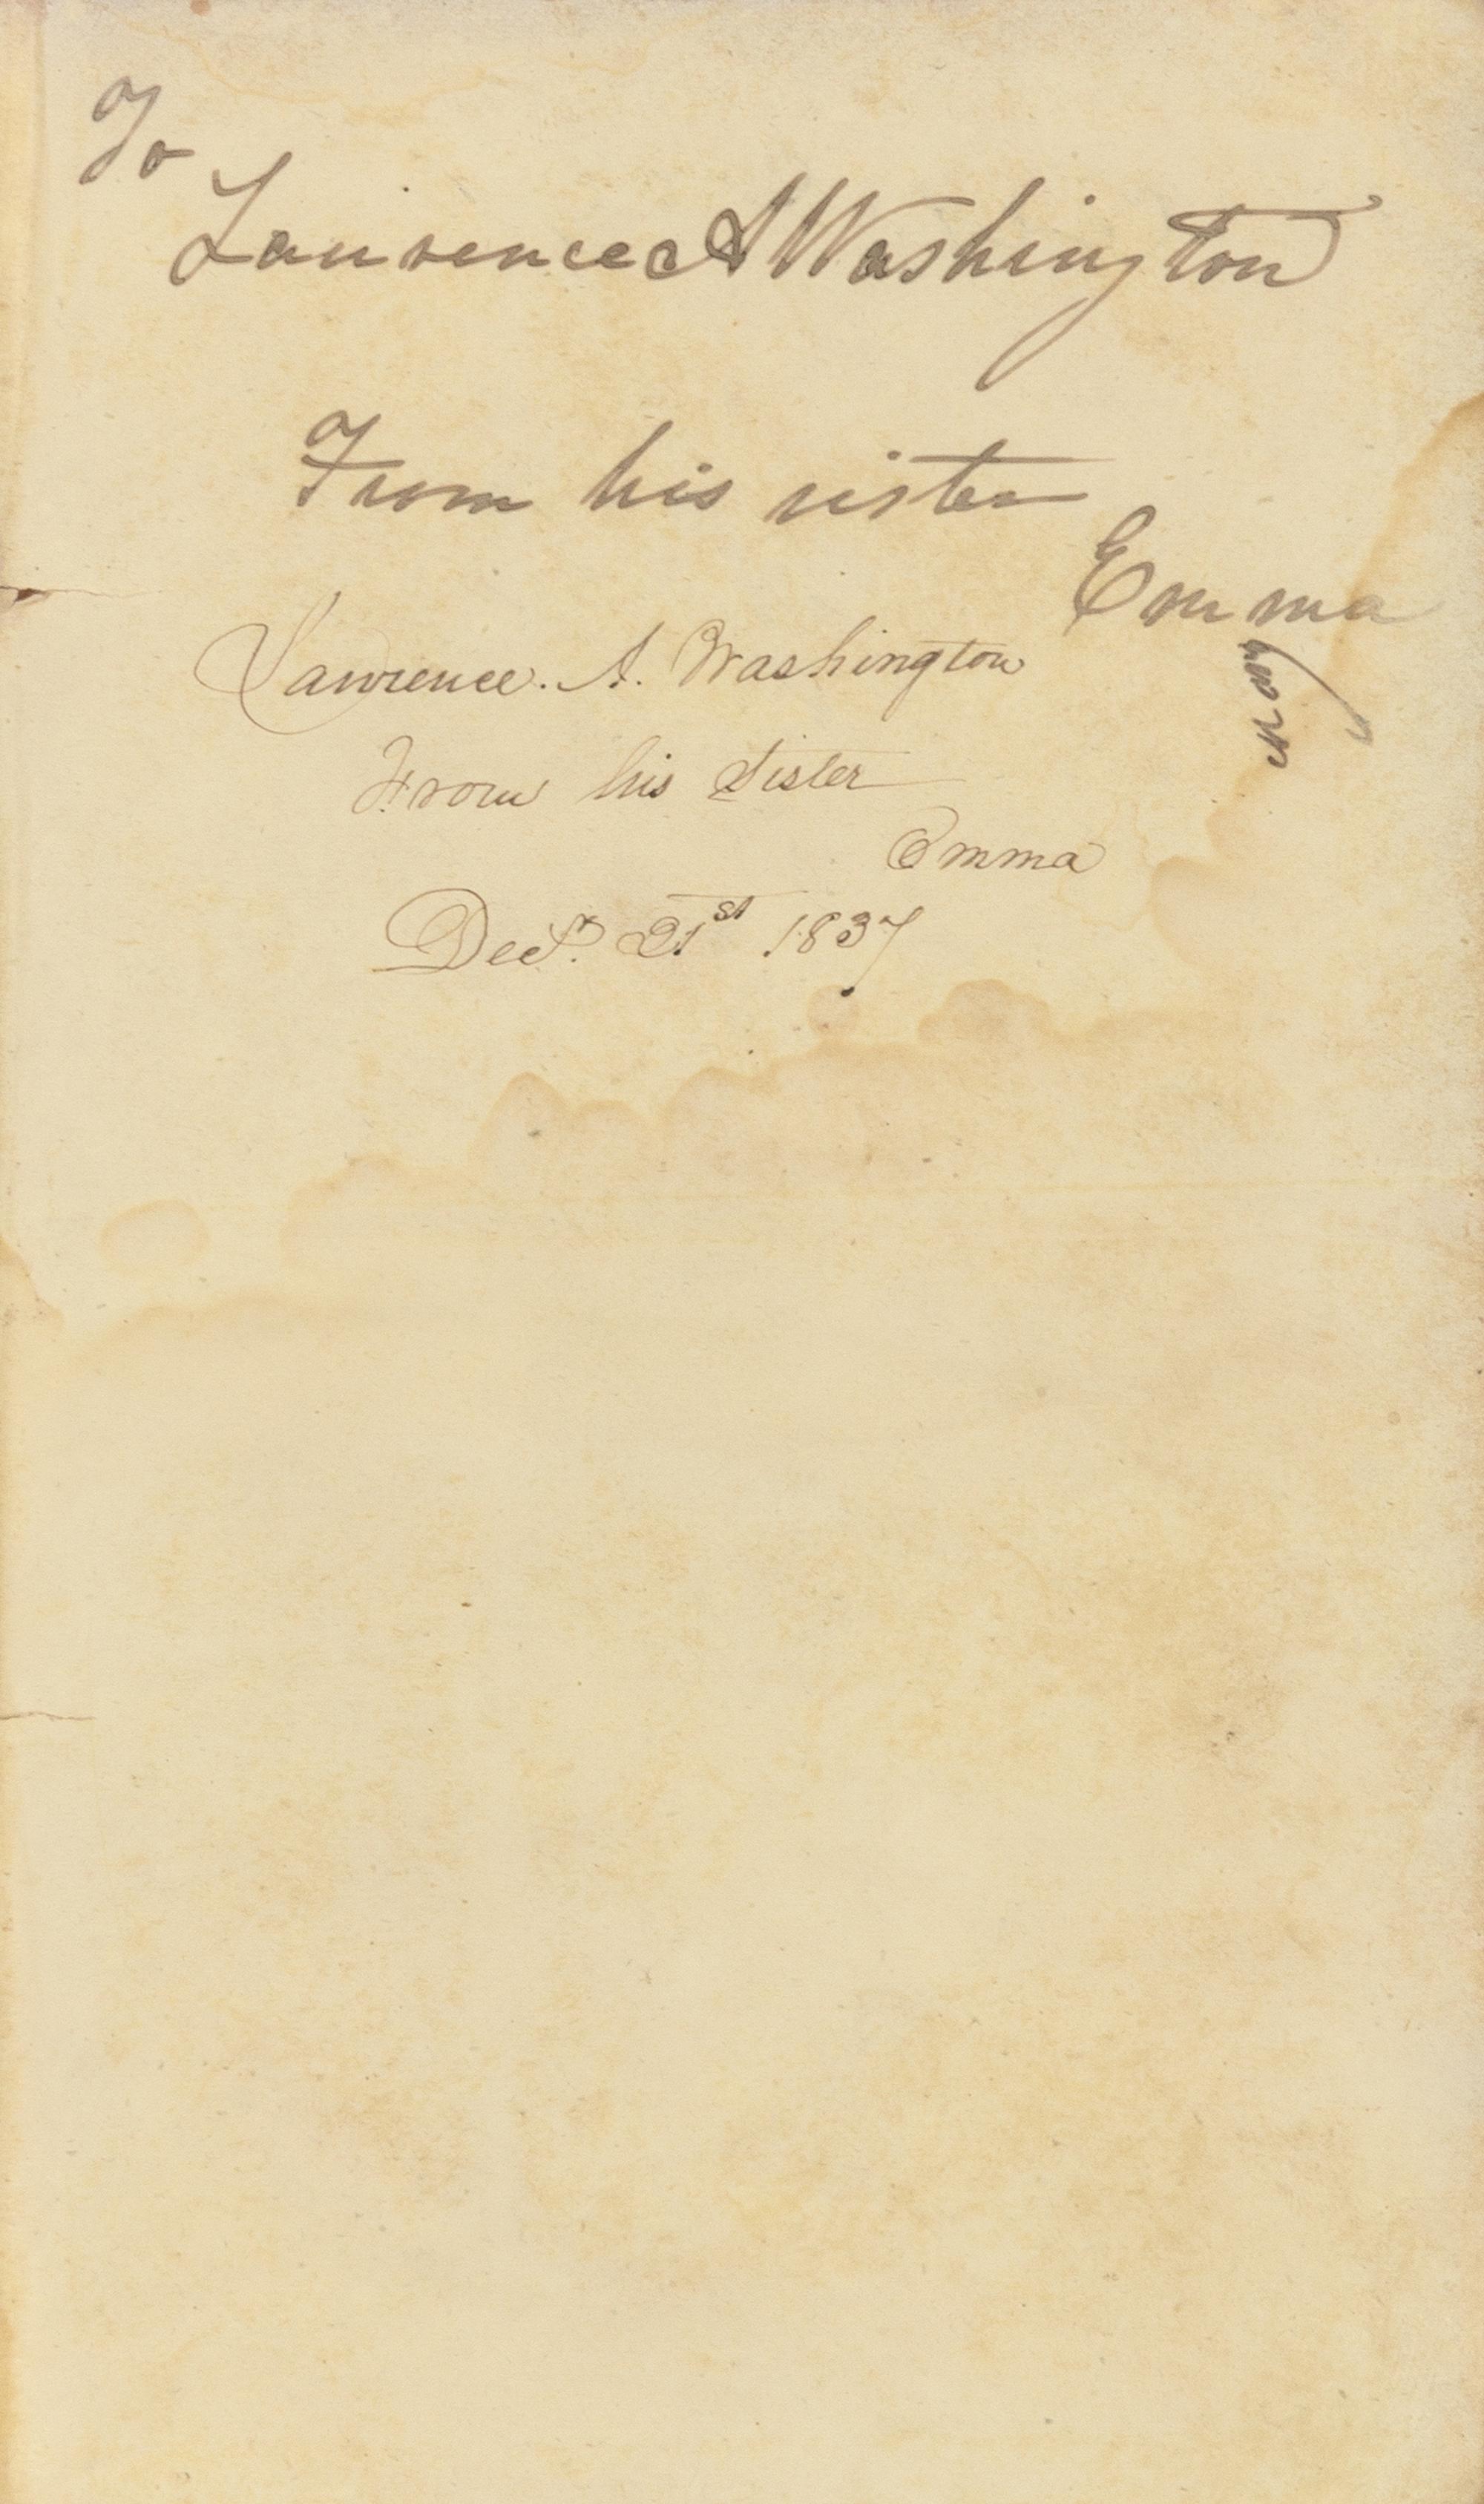 To
Lawrence A Washington
From his sister
Emma
Lawrence. A. Washington
From his Sister
Emma
Decr. 21st 1837